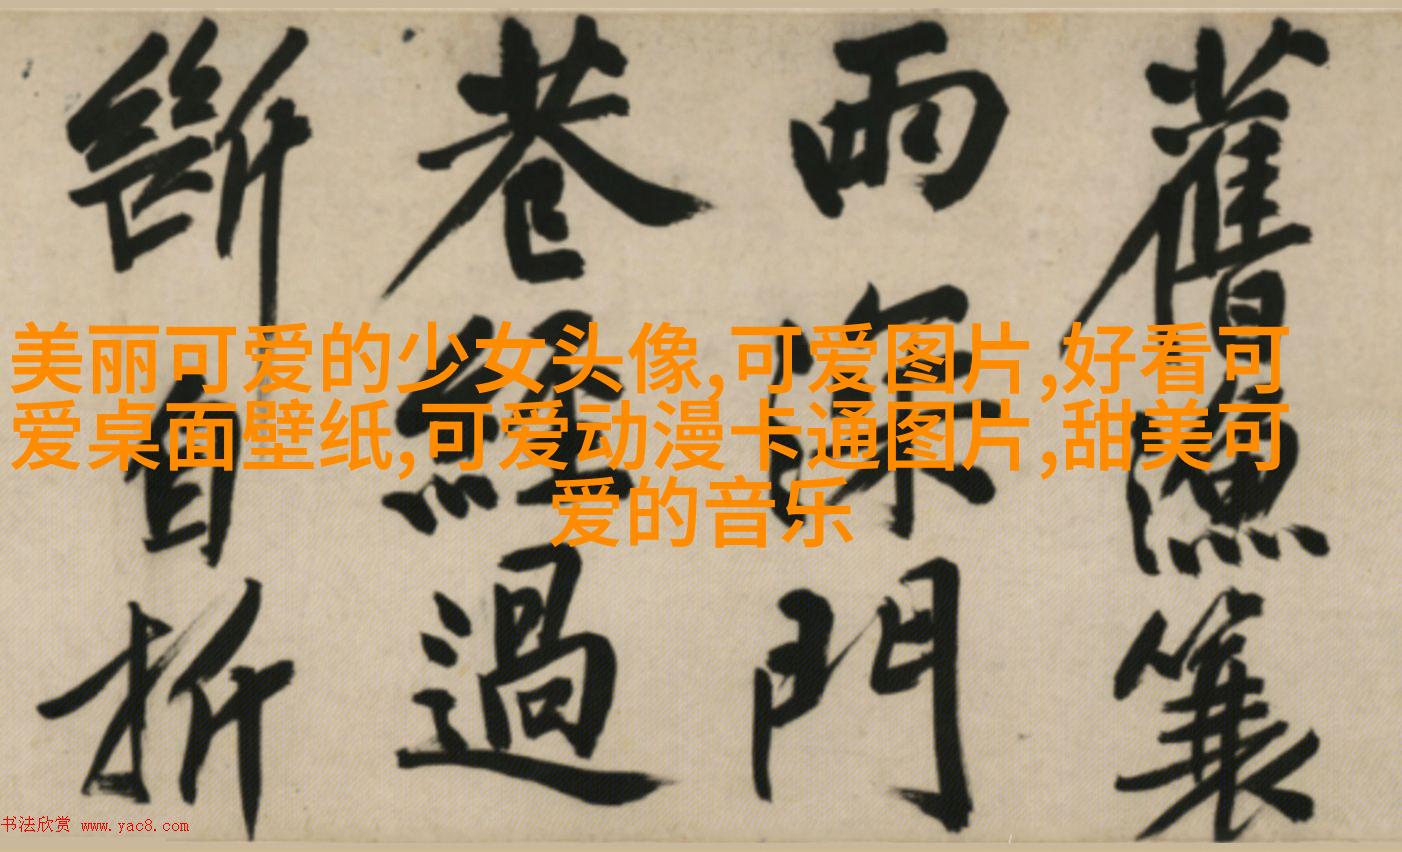 舊漁簑
雨深門
巷經過
斷自折
美丽可爱的少女头像,可爱图片,好看可
爱桌面壁纸,可爱动漫卡通图片,甜美可
爱的音乐
书法欣赏 www.yac8.com